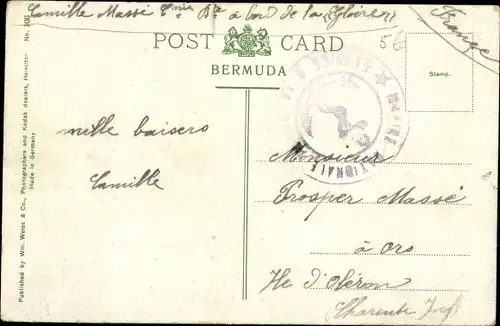 Camille Massé à bord de la "Gloire"
France
POST CARD
BERMUDA
56
Stamp.
MARINE NATIONALE
mille baisers
Camille
Monsieur
Prosper Massé
à Ors
Ile d'Oléron
Charente Inf
Published by Wm. Weiss & Co., Photographers and Kodak dealers, Hamilton
Made in Germany